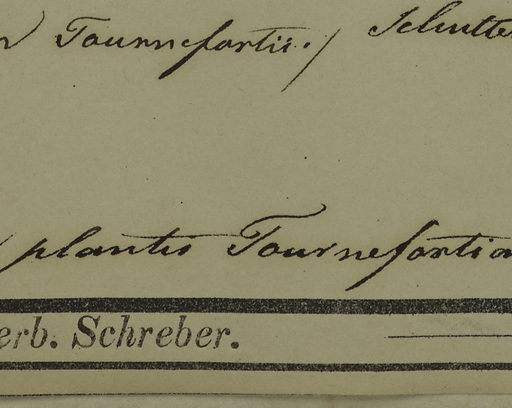 Tournefortii.)
plantis Tournefortian
erb. Schreber.